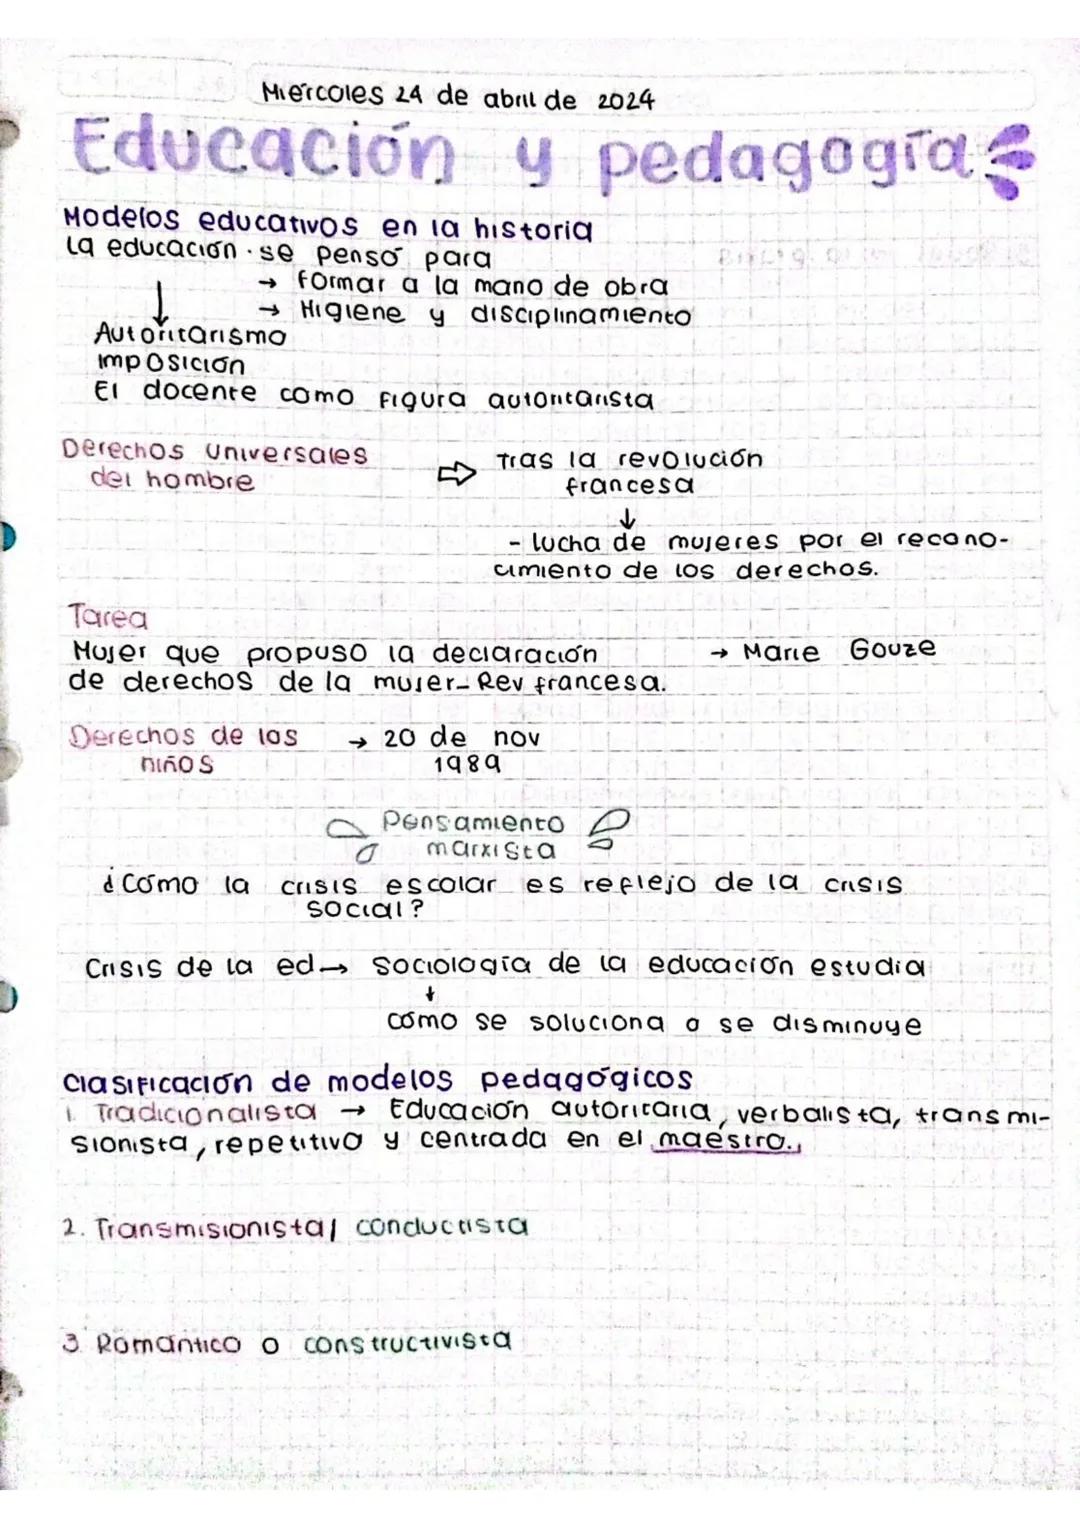 Miércoles 24 de abril de 2024
Educación y pedagogía
Modelos educativos en la historia
La educación se pensó para
→ formar a la mano de obra
→ Higiene y disciplinamiento
Autoritarismo
imposición
El docente como figura autoritarista
Derechos universales
del hombre
⇨ Tras la revolución
francesa
- lucha de mujeres por el recono-
cimiento de los derechos.
Tarea
Mujer que propuso la declaración → Marie Gouze
de derechos de la mujer- Rev francesa.
Derechos de los → 20 de nov
niños 1989
Pensamiento
marxista
¿Cómo la crisis escolar es reflejo de la crisis
social?
Crisis de la ed → Sociología de la educación estudia
cómo se soluciona o se disminuye
Clasificación de modelos pedagógicos
1. Tradicionalista → Educación autoritaria, verbalista, transmi-
sionista, repetitiva y centrada en el maestro.
2. Transmisionista/ conductista
3. Romántico o constructivista